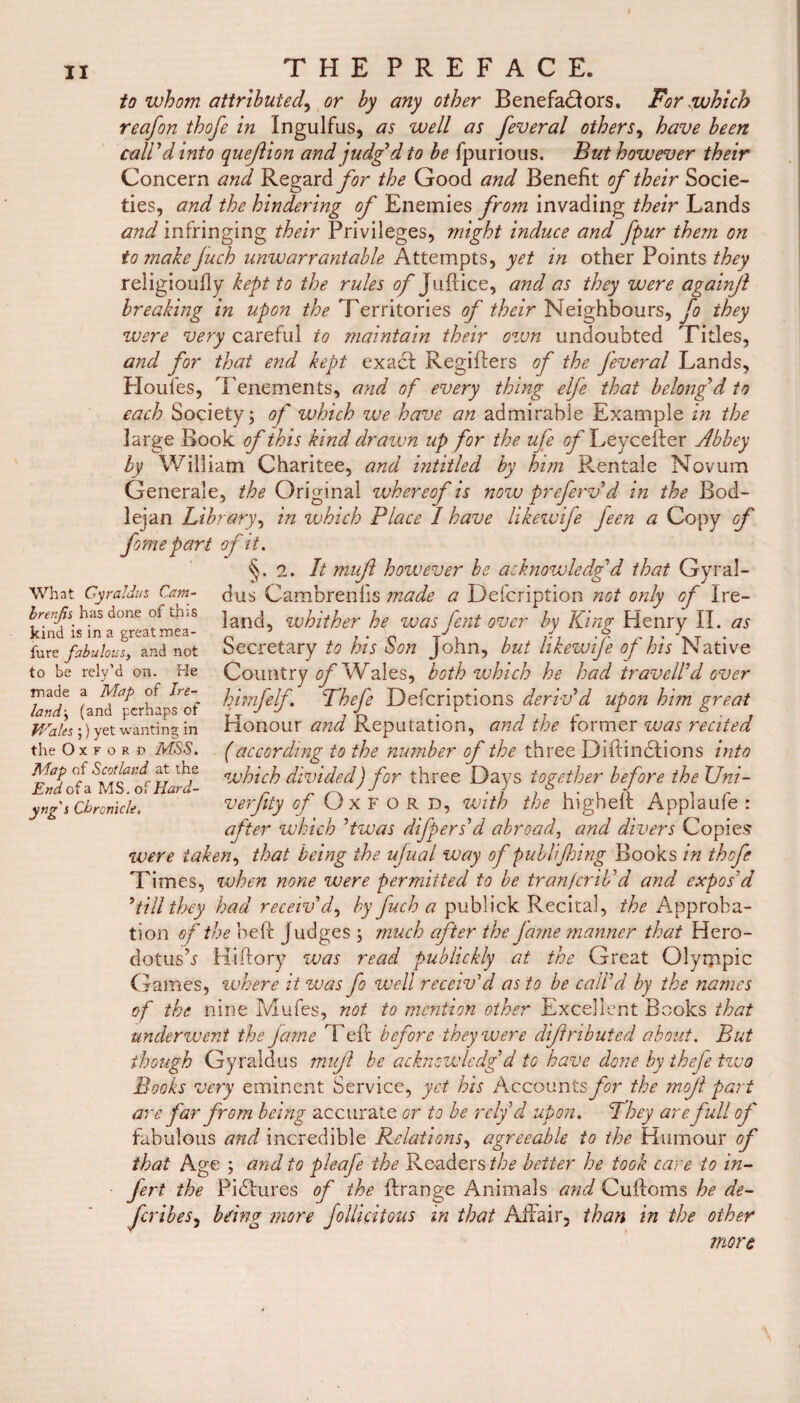 II
THE PREFACE.
to whom attributed, or by any other Benefactors. For which
reaſon thoſe in Ingulfus, as well as ſeveral others, have been
call'd into queſtion and judg'd to be ſpurious. But however their
Concern and Regard for the Good and Benefit of their Socie-
ties, and the hindering of Enemies from invading their Lands
and infringing their Privileges, might induce and ſpur them on
to make ſuch unwarrantable Attempts, yet in other Points they
religiouſly kept to the rules of Juſtice, and as they were againſt
breaking in upon the Territories of their Neighbours, ſo they
were very careful to maintain their own undoubted Titles,
and for that end kept exact Regiſters of the ſeveral Lands,
Houſes, Tenements, and of every thing elſe that belong'd to
each Society; of which we have an admirable Example in the
large Book of this kind drawn up for the uſe of Leyceſter Abbey
by William Charitee, and intitled by him Rentale Novum
Generale, the Original whereof is now preſerv'd in the Bod-
lejan Library, in which Place I have likewiſe ſeen a Copy of
ſome part of it.
§. 2. It muſt however be acknowledg'd that Gyral-
dus Cambrenſis made a Deſcription not only of Ire-
land, whither he was ſent over by King Henry II. as
Secretary to his Son John, but likewiſe of his Native
Country of Wales, both which he had travell'd over
himſelf. Theſe Deſcriptions deriv'd upon him great
Honour and Reputation, and the former was recited
(according to the number of the three Diſtinctions into
which divided) for three Days together before the Uni-
verſity of OXFORD, with the higheſt Applauſe:
after which 'twas diſpers'd abroad, and divers Copies
What Gyraldus Cam-
brenſis has done of this
kind is in a great mea-
ſure fabulous, and not
to be rely'd on. He
made a Map of Ire-
land; (and perhaps of
Wales;) yet wanting in
the OXFORD MSS.
Map of Scotland at the
End of a MS. of Hard-
yng's Chronicle.
were taken, that being the uſual way of publiſhing Books in thoſe
Times, when none were permitted to be tranſcrib'd and expos'd
'till they had receiv'd, by ſuch a publick Recital, the Approba-
tion of the beſt Judges; much after the ſame manner that Hero-
dotus's Hiſtory was read publickly at the Great Olympic
Games, where it was ſo well receiv'd as to be call'd by the names
of the nine Muſes, not to mention other Excellent Books that
underwent the ſame Teſt before they were diſtributed about. But
though Gyraldus muſt be acknowledg'd to have done by theſe two
Books very eminent Service, yet his Accounts for the moſt part
are far from being accurate or to be rely'd upon. They are full of
fabulous and incredible Relations, agreeable to the Humour of
that Age; and to pleaſe the Readers the better he took care to in-
ſert the Pictures of the ſtrange Animals and Cuſtoms he de-
ſcribes, being more ſollicitous in that Affair, than in the other
more